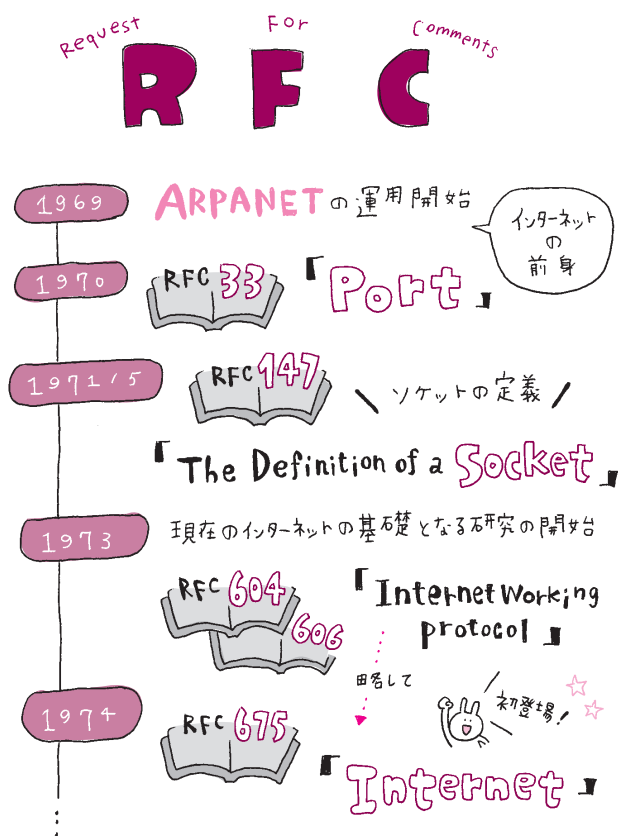 Request For Comments
RFC
1969
ARPANETの運用開始
インターネット
の
前身
1970
RFC 33
「Port」
1971/5
RFC 147
\ ソケットの定義 /
「The Definition of a Socket」
1973
現在のインターネットの基礎となる研究の開始
RFC 604
606
「Internetworking
protocol」
略して
初登場!
1974
RFC 675
「Internet」